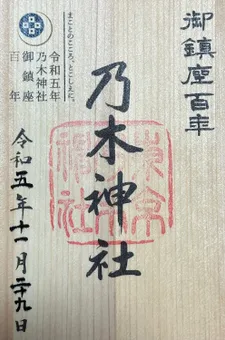 御鎮座百年
乃木神社
まことのこころ、とこしえに。
令和五年
乃木神社
御鎮座
百年
令和五年十一月廿九日